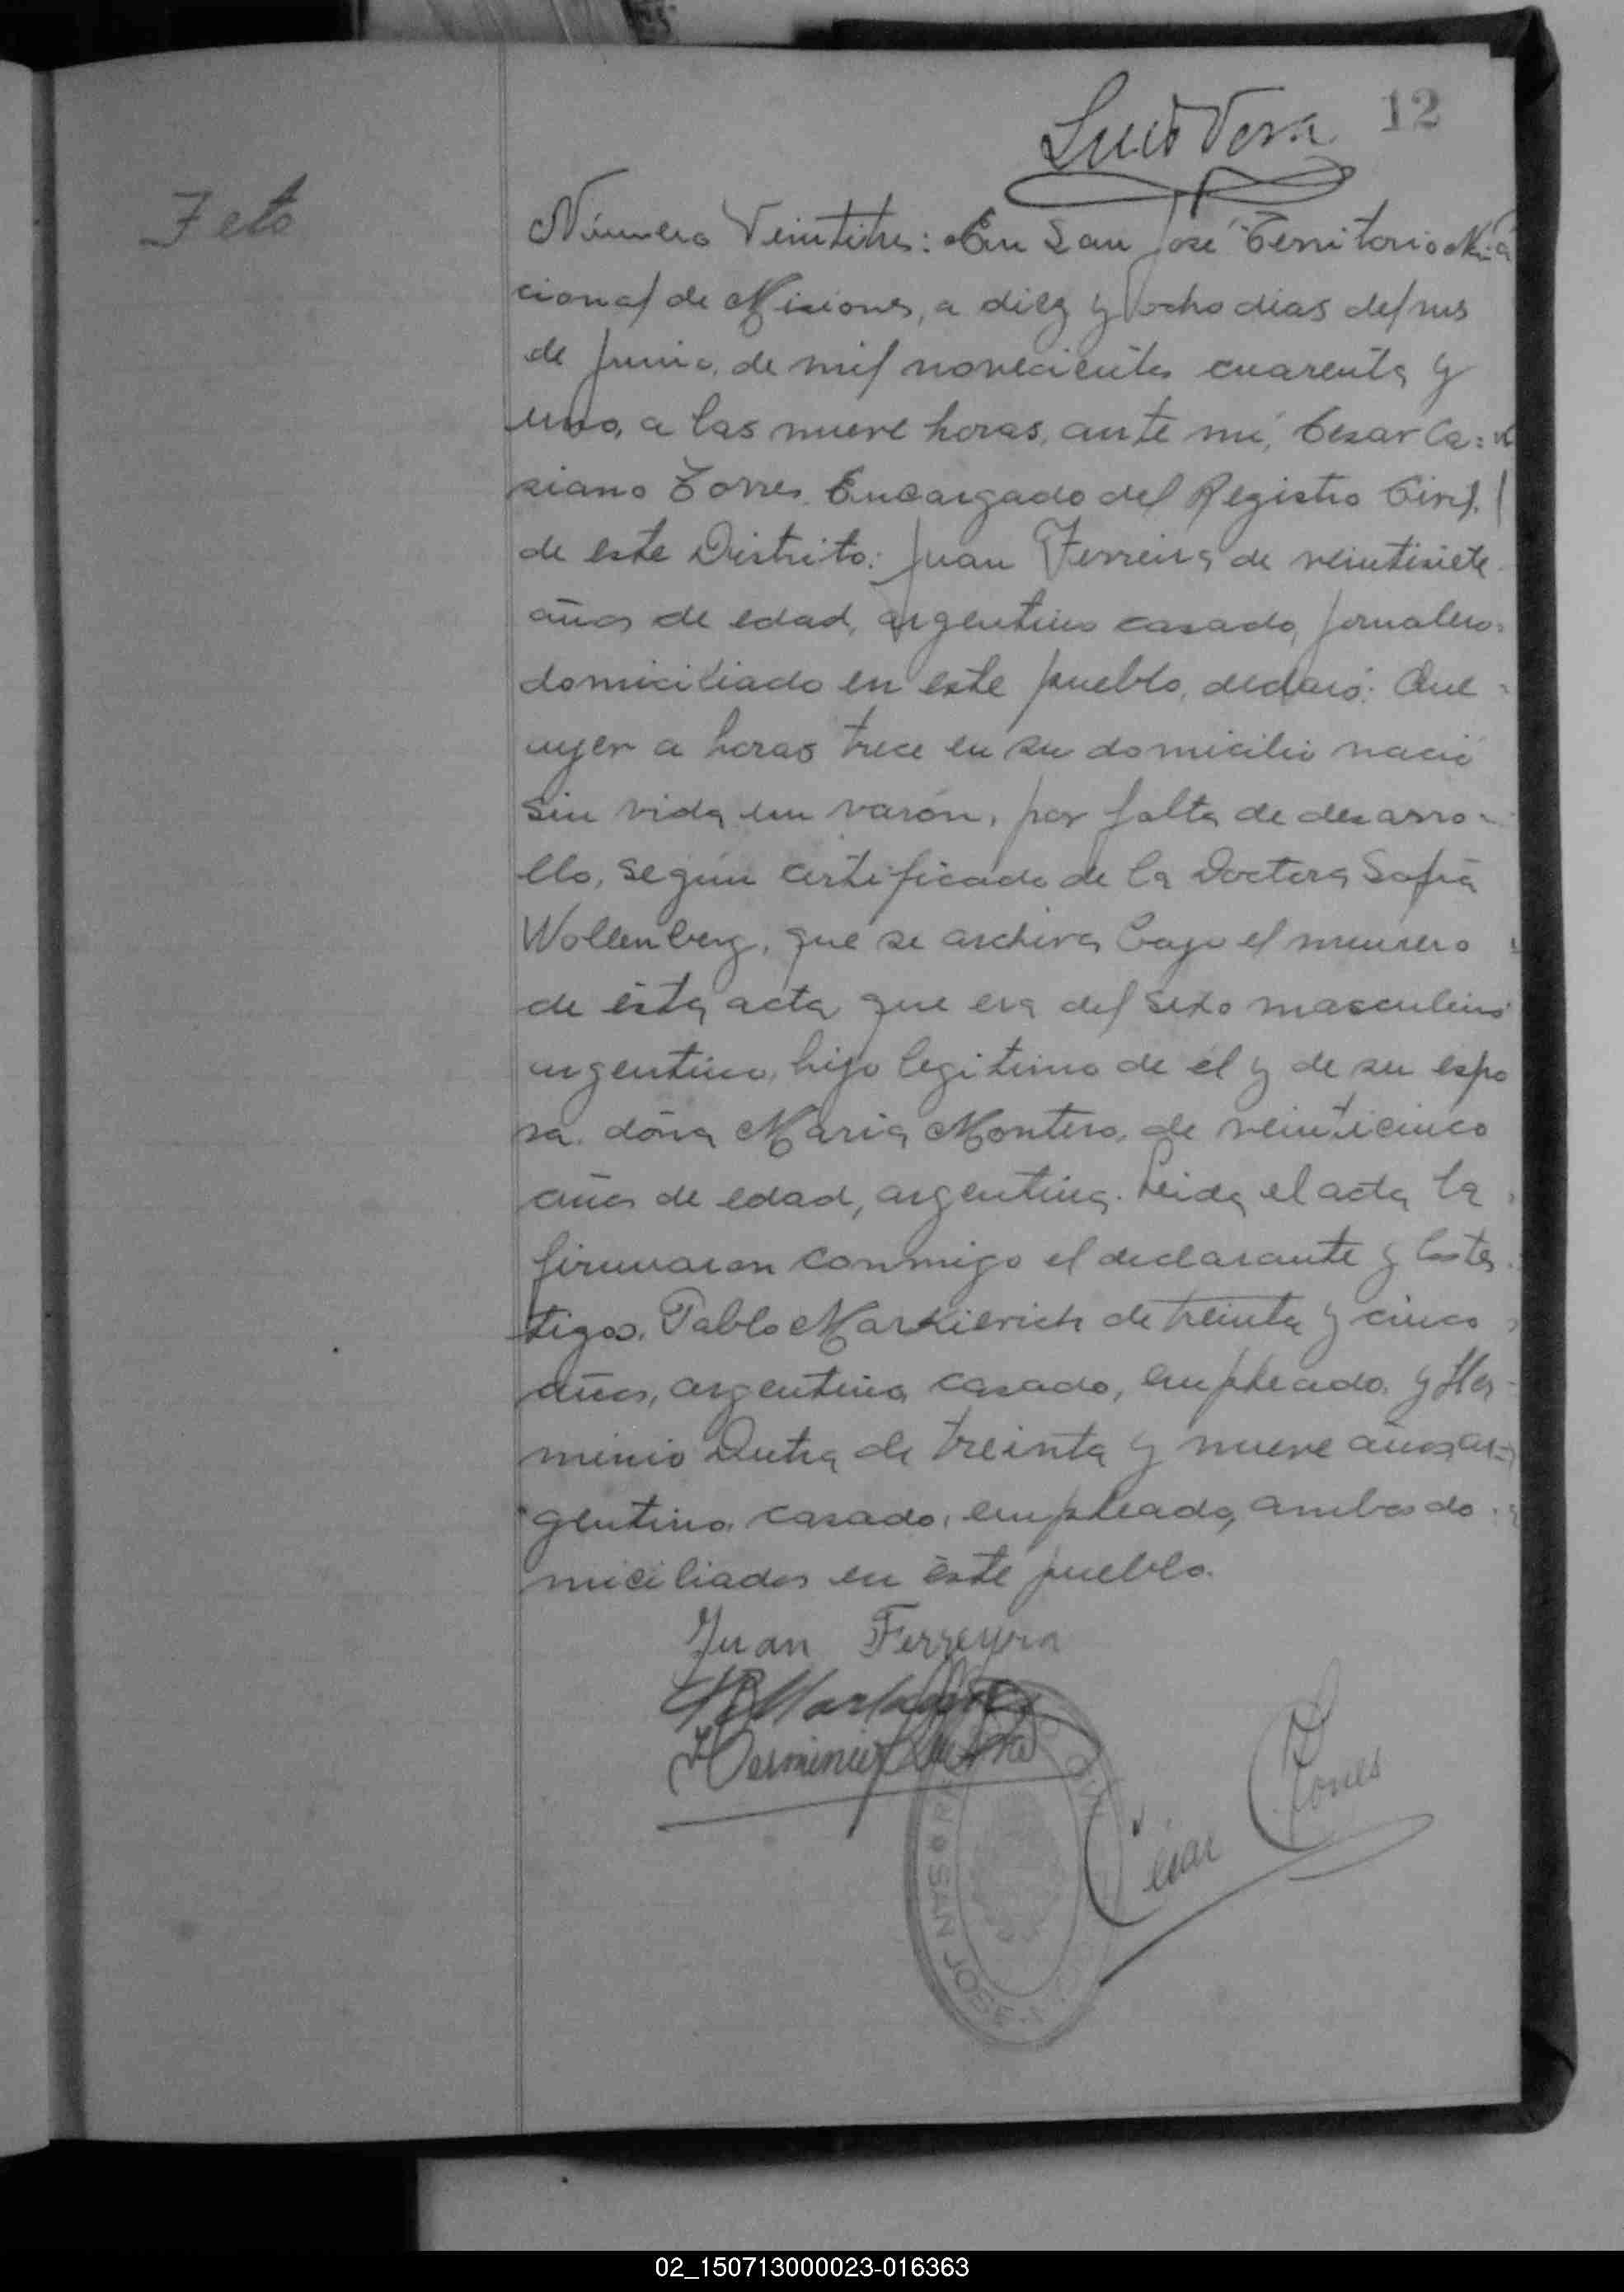 12
Feto
Número Veintitres: En San José Territorio Na
cional de Misiones, a diez y ocho dias del mes
de Junio, de mil novecientos cuarenta y
uno, a las nueve horas, ante mi, Cesar Ca=
siano Torres. Encargado del Registro Civil.
de este Distrito: Juan Ferreira de veintisiete
años de edad, argentino casado, jornalero.
domiciliado en este pueblo, declaró: Que
ayer a horas trece en su domicilio nació
sin vida un varón, por falta de desarro-
llo, según certificado de la Doctora Sofia
Wollenberg, que se archiva bajo el número
de ésta acta que era del sexo masculino
argentino, hijo legitimo de el y de su espo
sa. doña Maria Montero, de veinticinco
años de edad, argentina. Leida el acta la
firmaron conmigo el declarante y los tes
tigos. Pablo Markievich de treinta y cinco
años, argentino casado, empleado. y Her-
minio Dutra de treinta y nueve años, ar-
gentino, casado, empleado, ambos do
miciliados en éste pueblo.
Juan Ferreyra
Herminio Dutra
Cesar Torres
SAN JOSE
02_150713000023-016363